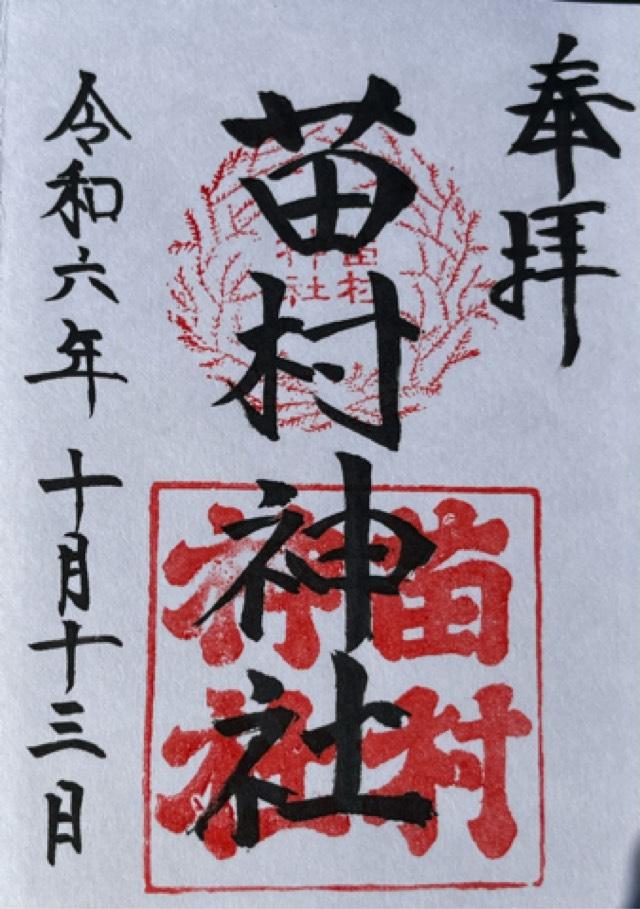 奉拝
苗村神社
苗村
神社
苗村
神社
令和六年十月十三日